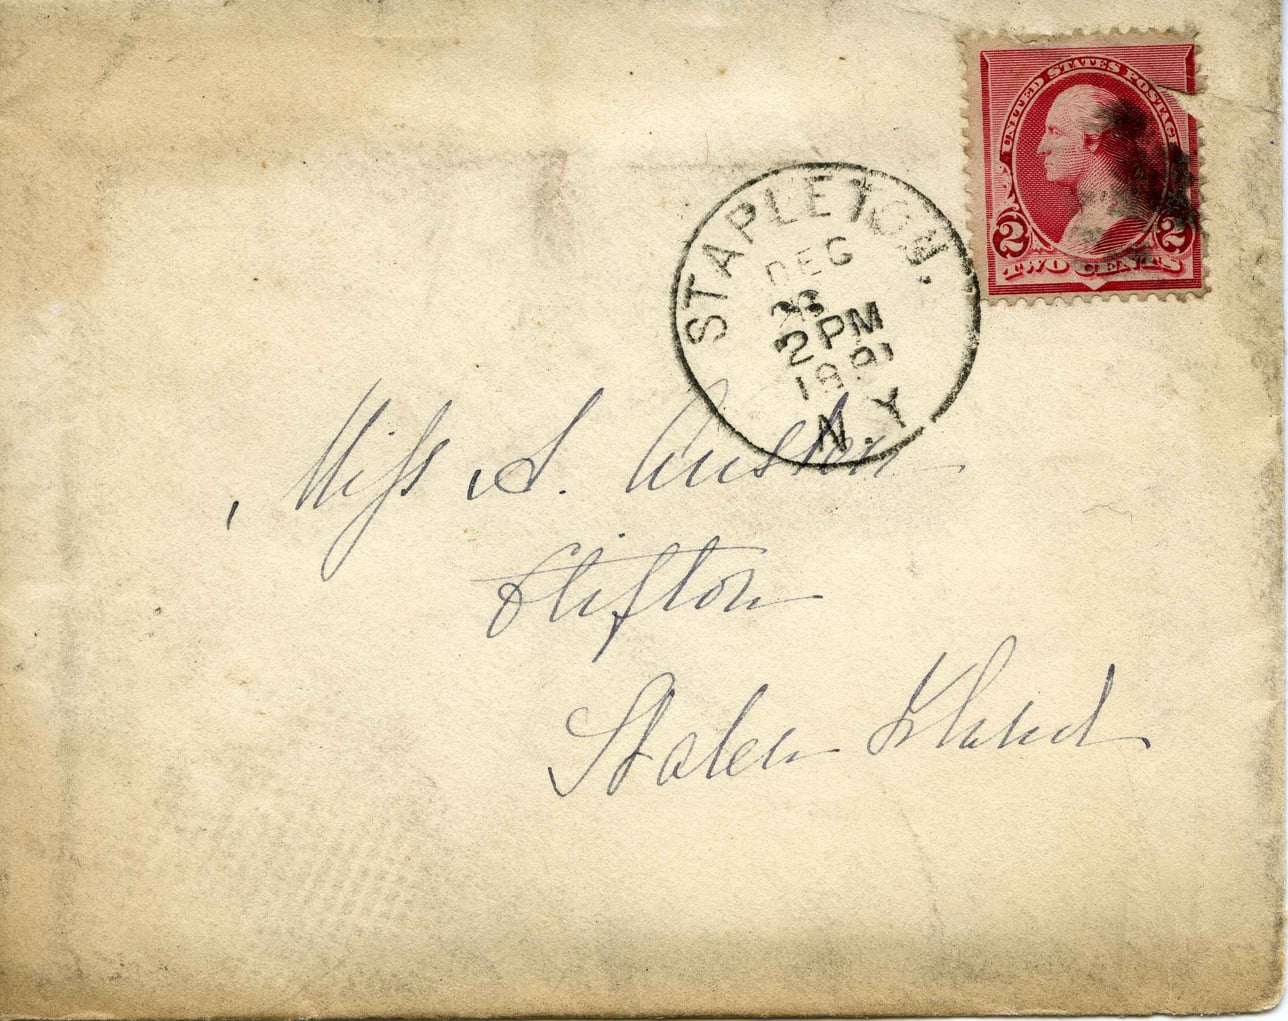 UNITED STATES POSTAGE
2 2
TWO CENTS
STAPLETON,
DEC
2 PM
1891
N.Y
Miss S. Austen
Clifton
Staten Island